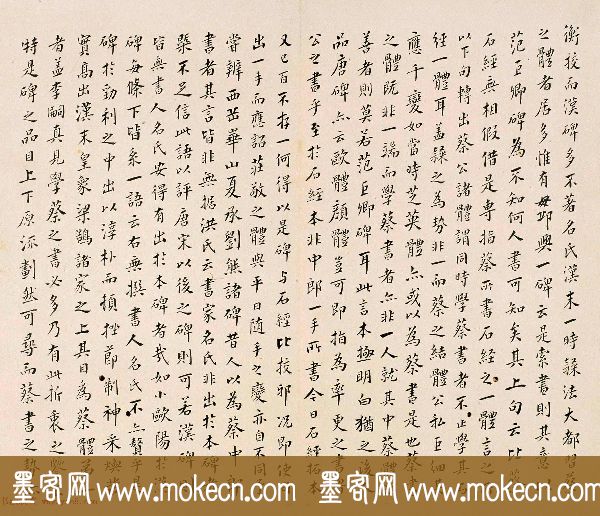 衡挍而漢碑多不著名氏漢末一時隸法大都習
之體者居多惟有毋邱興一碑云是索書則其意
范巨卿碑為不知何人書可知矣其上句云比蔡
石經無相假借是專指蔡所書石經之一體言之
以下句轉出蔡公諸體謂同時學蔡書者不止學其
經一體耳蓋隸之為勢非一而蔡之結體公私巨細其
應千變如當時芝英體亦或以為蔡書是也蔡中
之體既非一端而學蔡書者亦非一人就其中蔡體
善者則莫若范巨卿碑耳此言本極明白猶之後
品唐碑亦云歐體顏體豈可即指為率更之書
公之書乎至於石經本非中郎一手所書今日石經拓本
又已百不存一何得以是碑与石經比挍邪況即使
出一手而應詔莊敬之體與平日随手之變亦自不同
嘗辨西岳華山夏承劉熊諸碑昔人以為蔡中
書者其言皆非無据洪氏云書家名氏出於本碑
槩不足信此語以評唐宋以後之碑則可若漢碑則
皆無書人名氏安得有出於本碑者哉如小歐陽於漢
碑每條下皆系一語云右無撰書人名氏不亦贅乎是
碑於勁利之中出以淳朴而頓挫節制神采燦
實寫出漢末皇象梁鵠諸家之上其目為蔡體
者盖李嗣真見學蔡之書必多乃有此折衷之
特是碑之品目上下原流劃然可尋而蔡書之
墨客网 www.mokecn.com
墨客网 www.mokecn.com